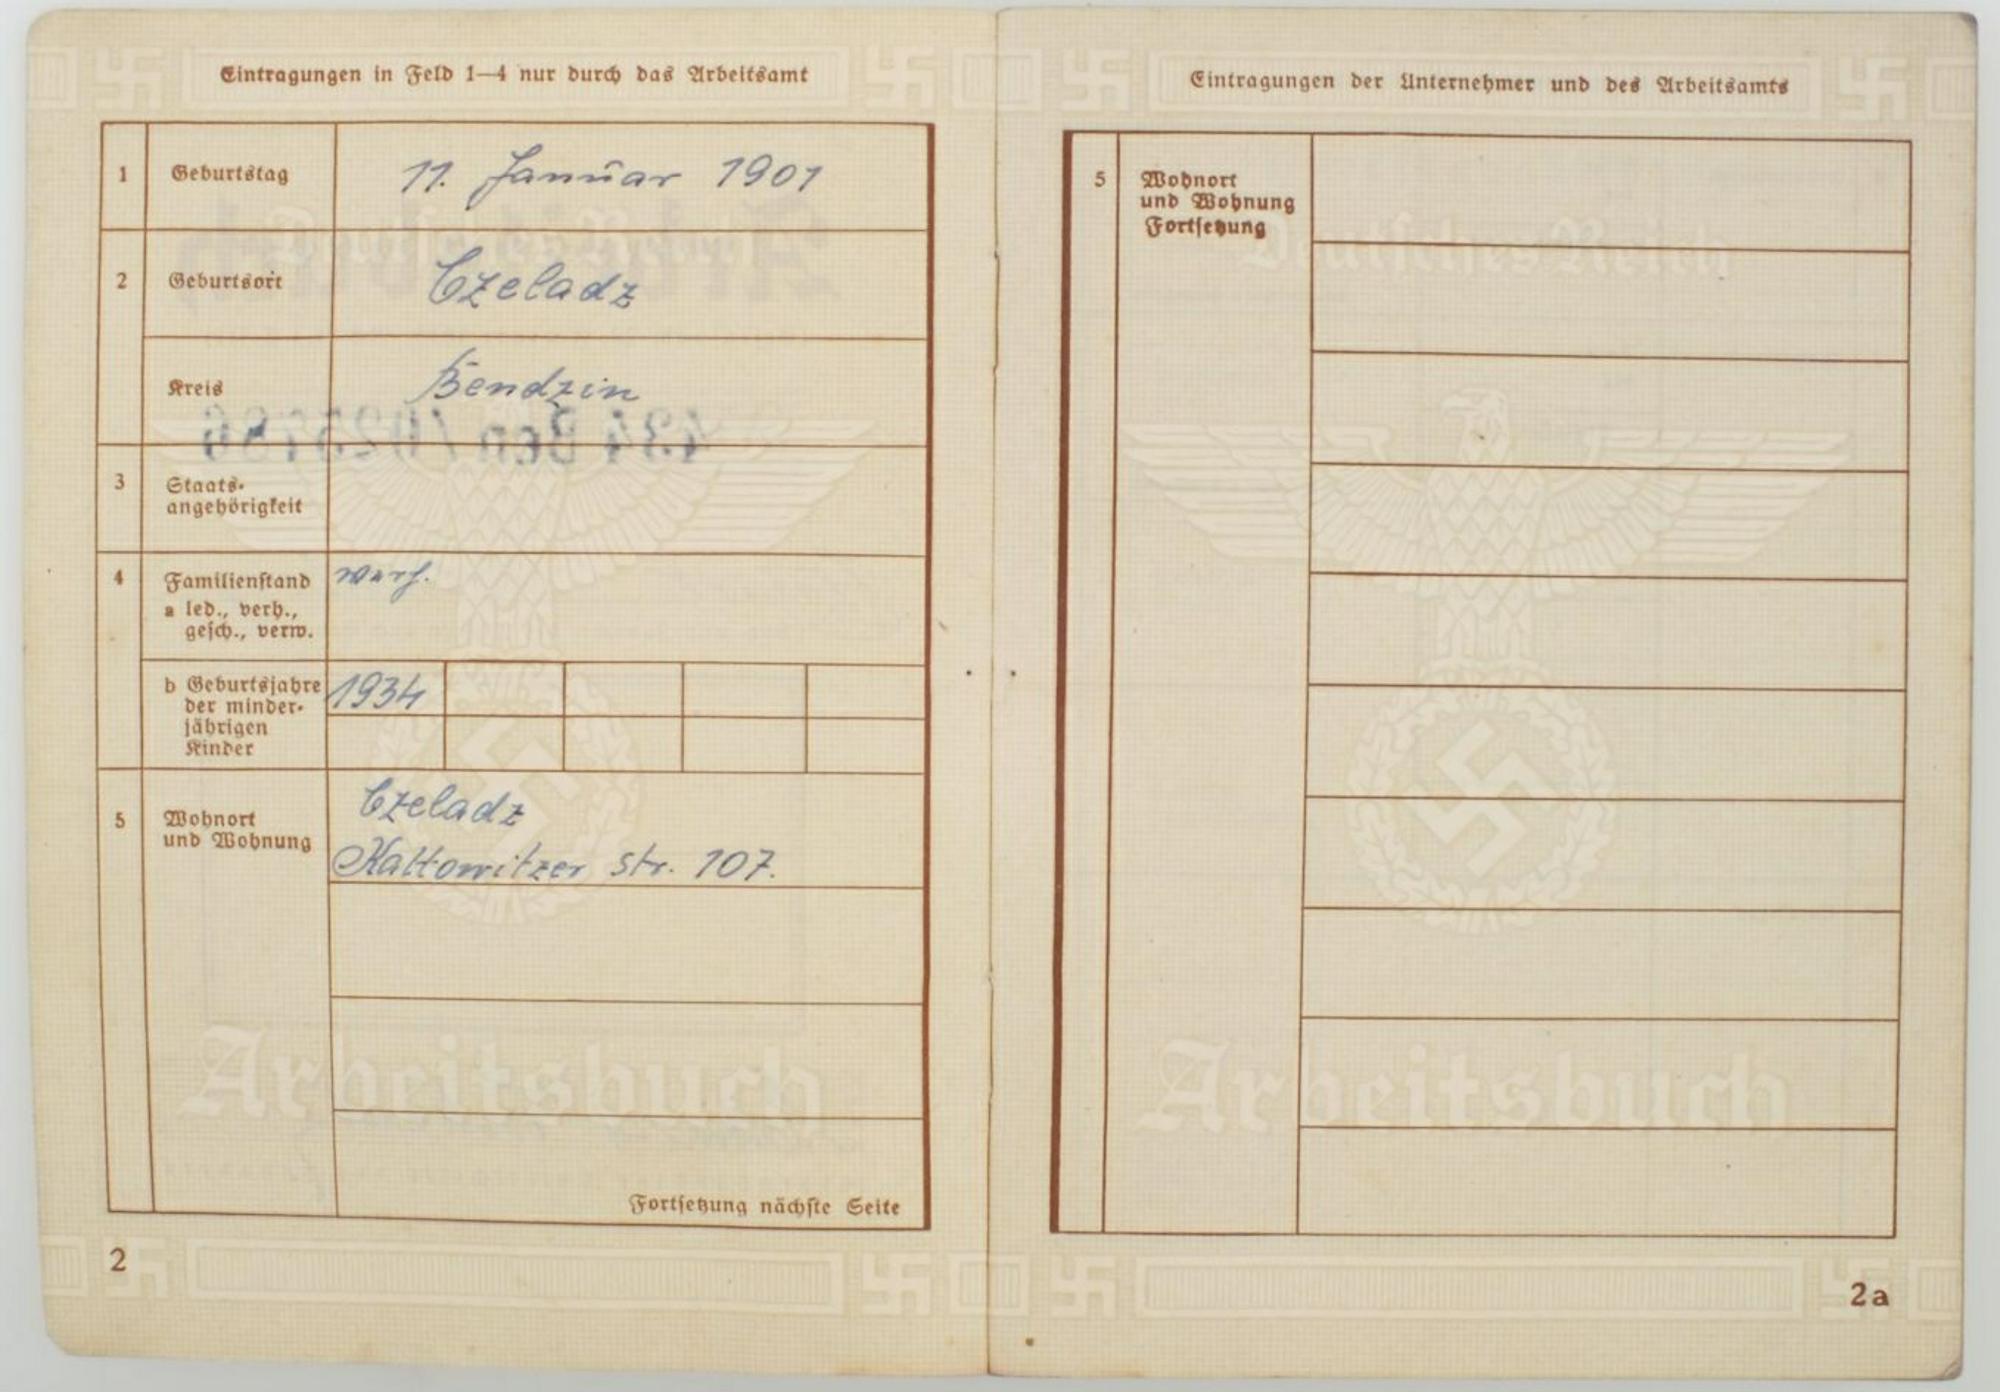 Eintragungen in Feld 1—4 nur durch das Arbeitsamt
1 Geburtstag 11. Januar 1901
2 Geburtsort Czeladz
Kreis Bendzin
3 Staats-
angehörigkeit
4 Familienstand
a led., verh.,
gesch., verw.
b Geburtsjahre 1934
der minder-
jährigen
Kinder
5 Wohnort
und Wohnung
Czeladz
Kattowitzer str. 107.
Fortsetzung nächste Seite
2
Arbeitsbuch
Eintragungen der Unternehmer und des Arbeitsamts
5 Wohnort
und Wohnung
Fortsetzung
Deutsches Reich
Arbeitsbuch
2a